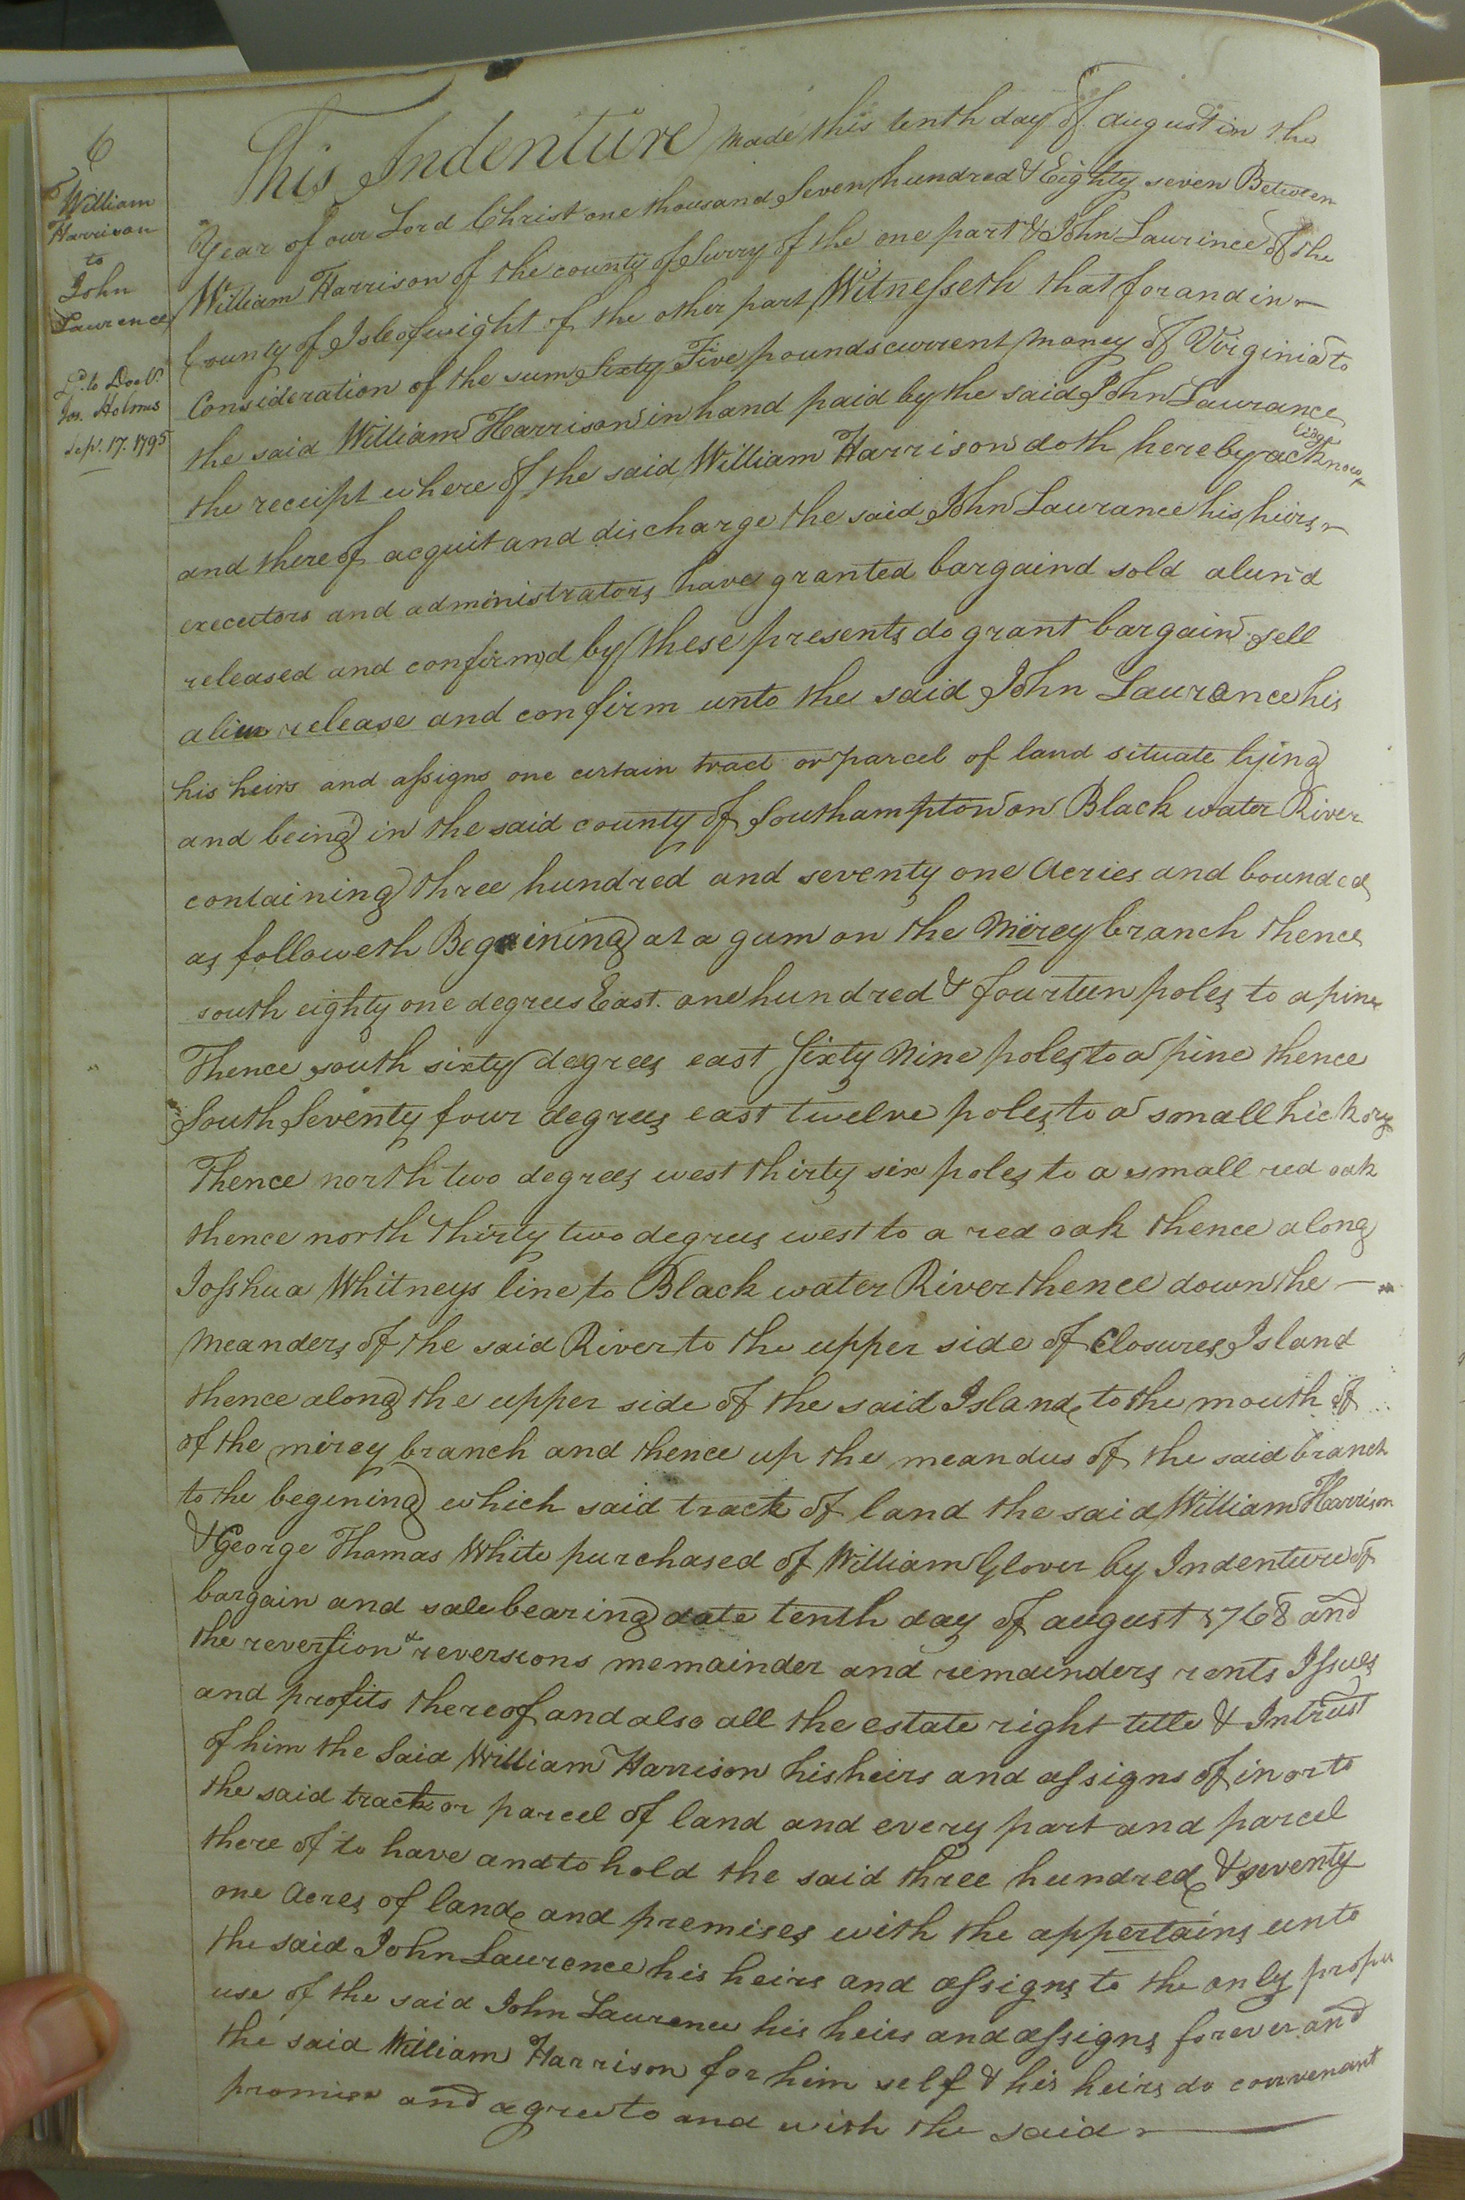 6
William
Harrison
to
John
Laurence
Jos. Holmes
Sepr. 17. 1795
This Indenture Made this tenth day of august in the
Year of our Lord Christ one thousand Seven hundred & Eighty seven Between
William Harrison of the county of Surry of the one part & John Laurince of the
County of Isle of wight of the other part Witnesseth that for and in
Consideration of the sum Sixty Five pounds current Money of Virginia to
the said William Harrison in hand paid by the said John Laurance
the receipt where of the said William Harrison doth hereby acknowlidge
and thereof acquit and discharge the said John Laurance his heirs
executors and administrators have granted bargaind sold aliend
released and confirmd by these presents do grant bargain sell
alien release and confirm unto the said John Laurance his
his heirs and assigns one certain tract or parcel of land situate lying
and being in the said county of Southampton on Black water River
containing three hundred and seventy one Acries and bounded
as followeth Begining at a gum on the Mirey branch thence
south eighty one degrees East. one hundred & fourteen poles to a pine
Thence south sixty degrees east Sixty Nine poles to a pine thence
South Seventy four degrees east twelve poles to a small hickory
Thence north two degrees west thirty six poles to a small red oak
thence north thirty two degrees west to a red oak thence along
Josshua Whitneys line to Black water River thence down the
meanders of the said River to the upper side of Closures Island
thence along the upper side of the said Island to the mouth of
of the mirey branch and thence up the meandus of the said branch
to the begining which said track of land the said William Harrison
& George Thomas White purchased of William Glover by Indenture of
bargain and sale bearing date tenth day of august 1768 and
the reversion & reversions memainder and remainders rents Issues
and profits thereof and also all the estate right title & Intrust
of him the Said William Harrison his heirs and assigns of in or to
the said track or parcel of land and every part and parcel
there of to have and to hold the said three hundred & seventy
one Acres of land and premises with the appertains unto
the said John Laurence his heirs and assigns to the only proper
use of the said John Laurence his heirs and assigns forever and
the said William Harrison for him self & his heirs do convenant
promise and agree to and with the said